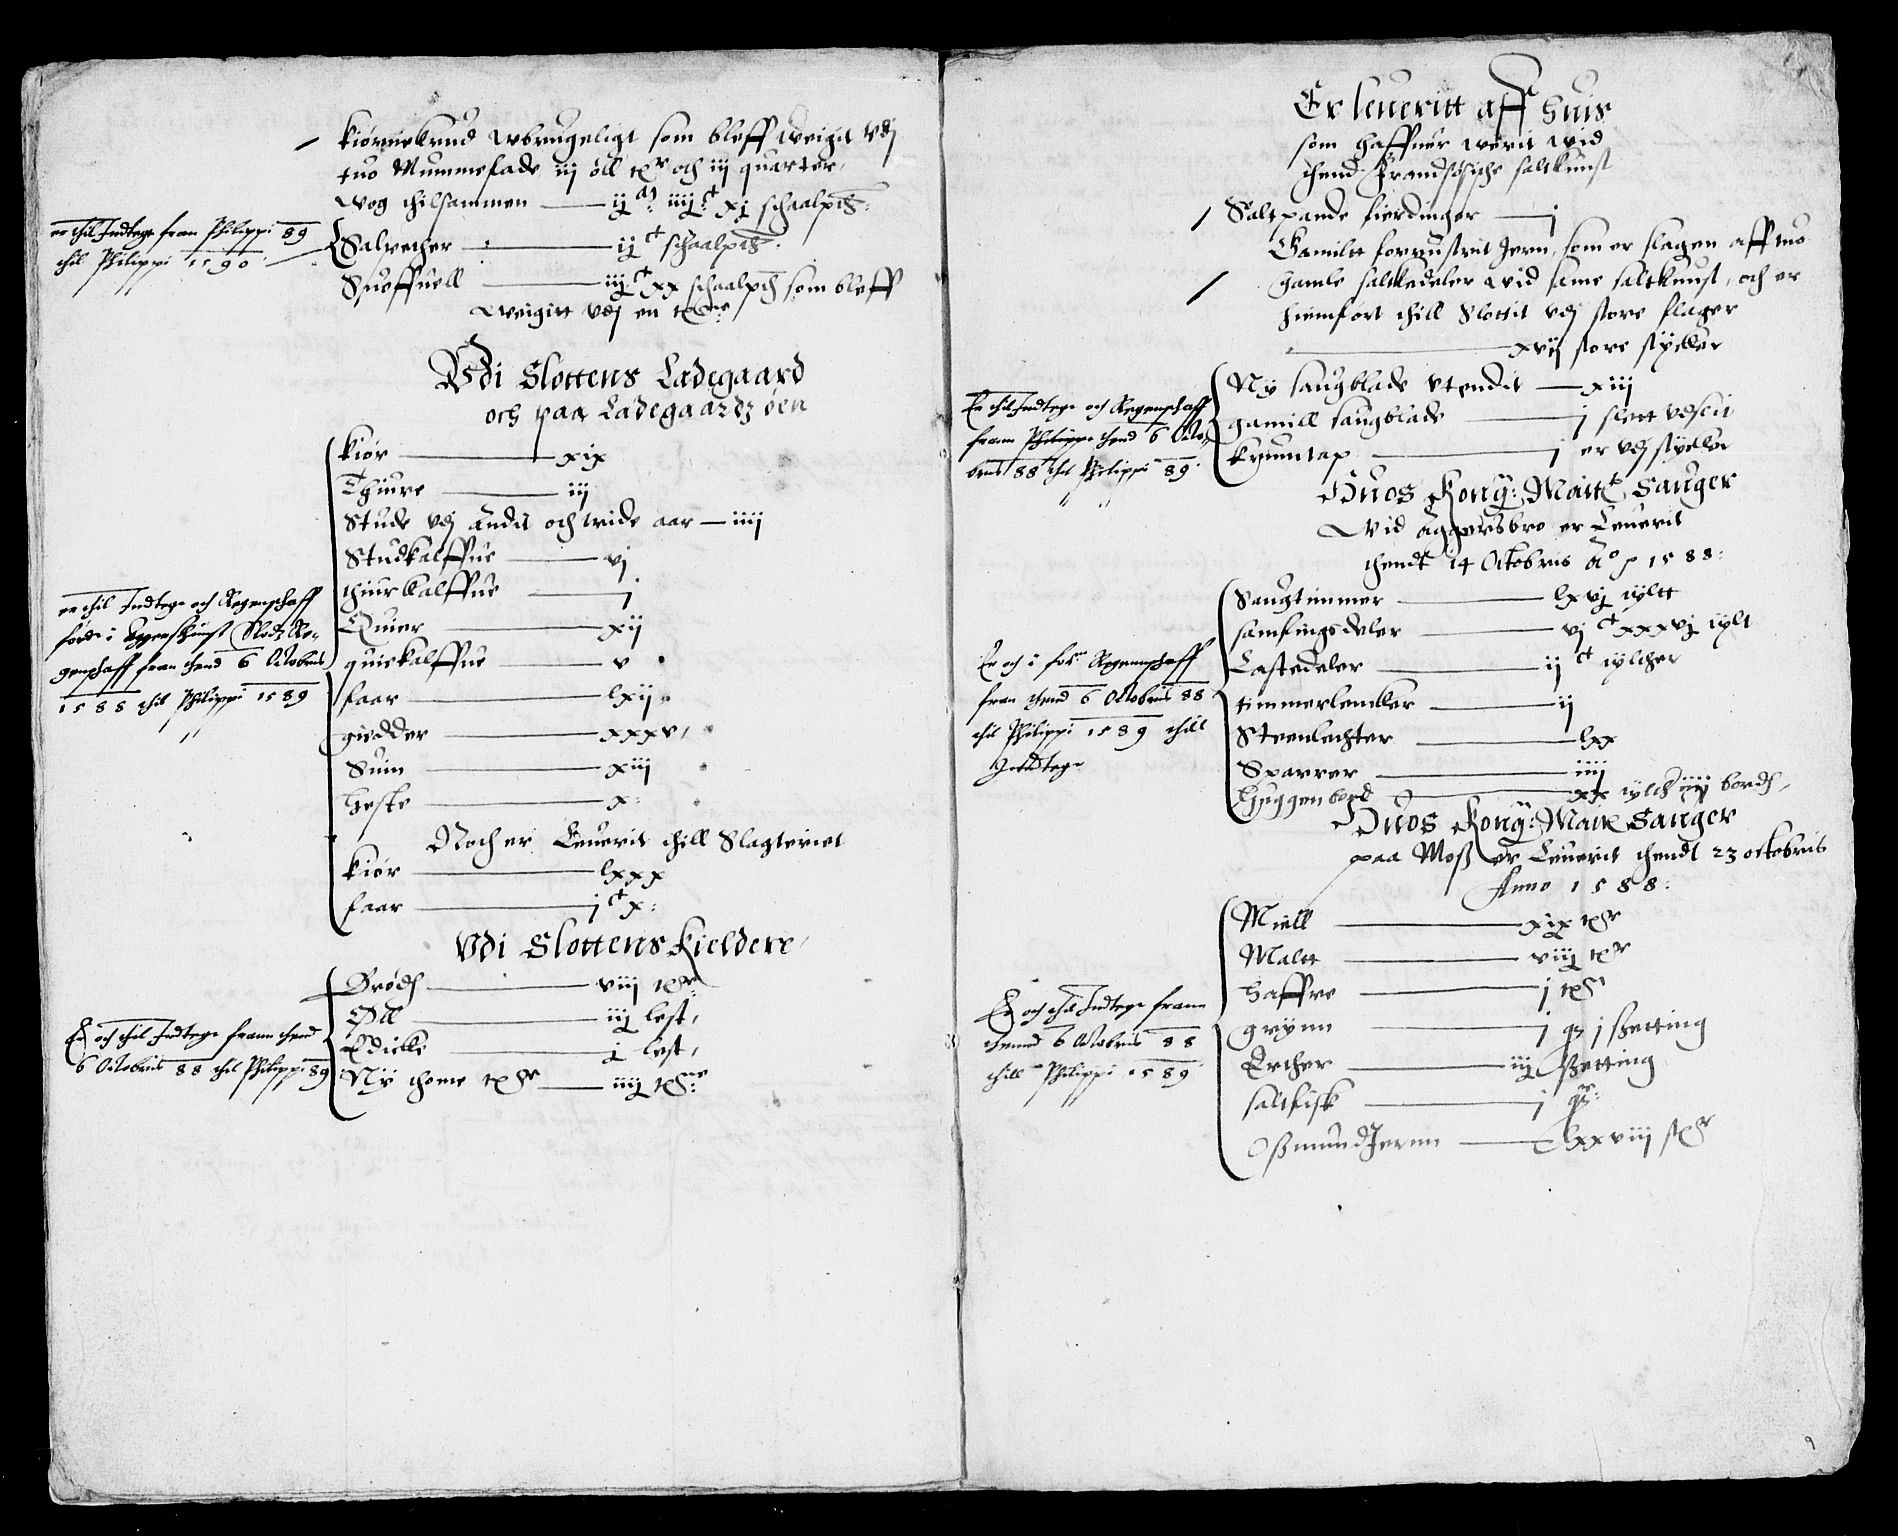 kiørnekrud wbrugeligt som bleff weigit vdj
tuo Mummefade iij øll tdr och iij quarter,
wog thilsammen — ij aff: iiij c xj schaalpd:
er thil Indtege fran Philippi 89
thil Philippi 1590
Salpether — ij c schaalpd:
Suoffuell — iij c xx schaalpd som bleff
weigitt vdj en tdne
Vdi Slottens Ladegaard
och paa Ladegaardz øen
kiør — xix
Thiure — iij
Stude vdj andit och tride aar — iiij
Studkalffue — vj
thiurkalffue — j
Quier — xij
quiekalffue — v
faar — lxij
giedder — xxxv,
Suin — xiij
heste — x:
er thil Indtege och Regenschaff
førde i Eggenskunst Slotz Re-
genschaff fran thend 6 Octobris
1588 thil Philippi 1589
Noch er Leuerit thill Slagteriet
kiør — lxxx
faar — j c x:
Vdi Slottens kieldere,
Brødt — viij tdr
Øll — iij lest,
Edicke — j lest,
Ny thome tdr — iiij tdne:
Er och thil Indtege frann thend
6 Octobris 88 thil Philippi 89
Er leueritt aff huis
som haffuer werit wid
thend Frandsösche saltkunst
Saltpande fierdinger — j
Gamilt forrustrit Jern, som er slagen aff tuo
gamle saltkedeler wid same saltkunst, och er
hiemført thill Slottit vdj store flager
— xvij store stycker
Ny saugblade vtendit — xiij
gamill saugblade — j slett vdslit
krumtap — j er vdj stycker
Er thil Indtege och Regenschaff
frann Philippi thend 6 Octo-
bris 88 thil Philippi 89.
Huos Kong: Maitt: sauger
wid Aggersbro er Leuerit
thendt 14 Octobris Ao p 1588:
Saugtimmer — lxvj tyltt
samfingsdeler — vj c xxxvj tylt
Lastedeler — ij c tylther
timmerlencker — ij
Steenlechter — lxx
Sparrer — iiij
Hyggenbord — xx tylth iiij bordt,
Er och i fors: Regennschaff
frann thend 6 Octobris 88
thil Philippi 1589 thill
Indtege
Huos Kong: Maitt sauger
paa Moss er Leuerit thendt 23 octobris
Anno 1588:
Miell — xix tdr
Maltt — viij tdr
haffre — j tdr
grynn — j qr j Setting
Erther — iij Setting
saltfisk — j qr:
Osmund Jernn — lxxviij std
Er och thil Indtege frann
thennd 6 Octobris 88
thill Philippi 1589
9